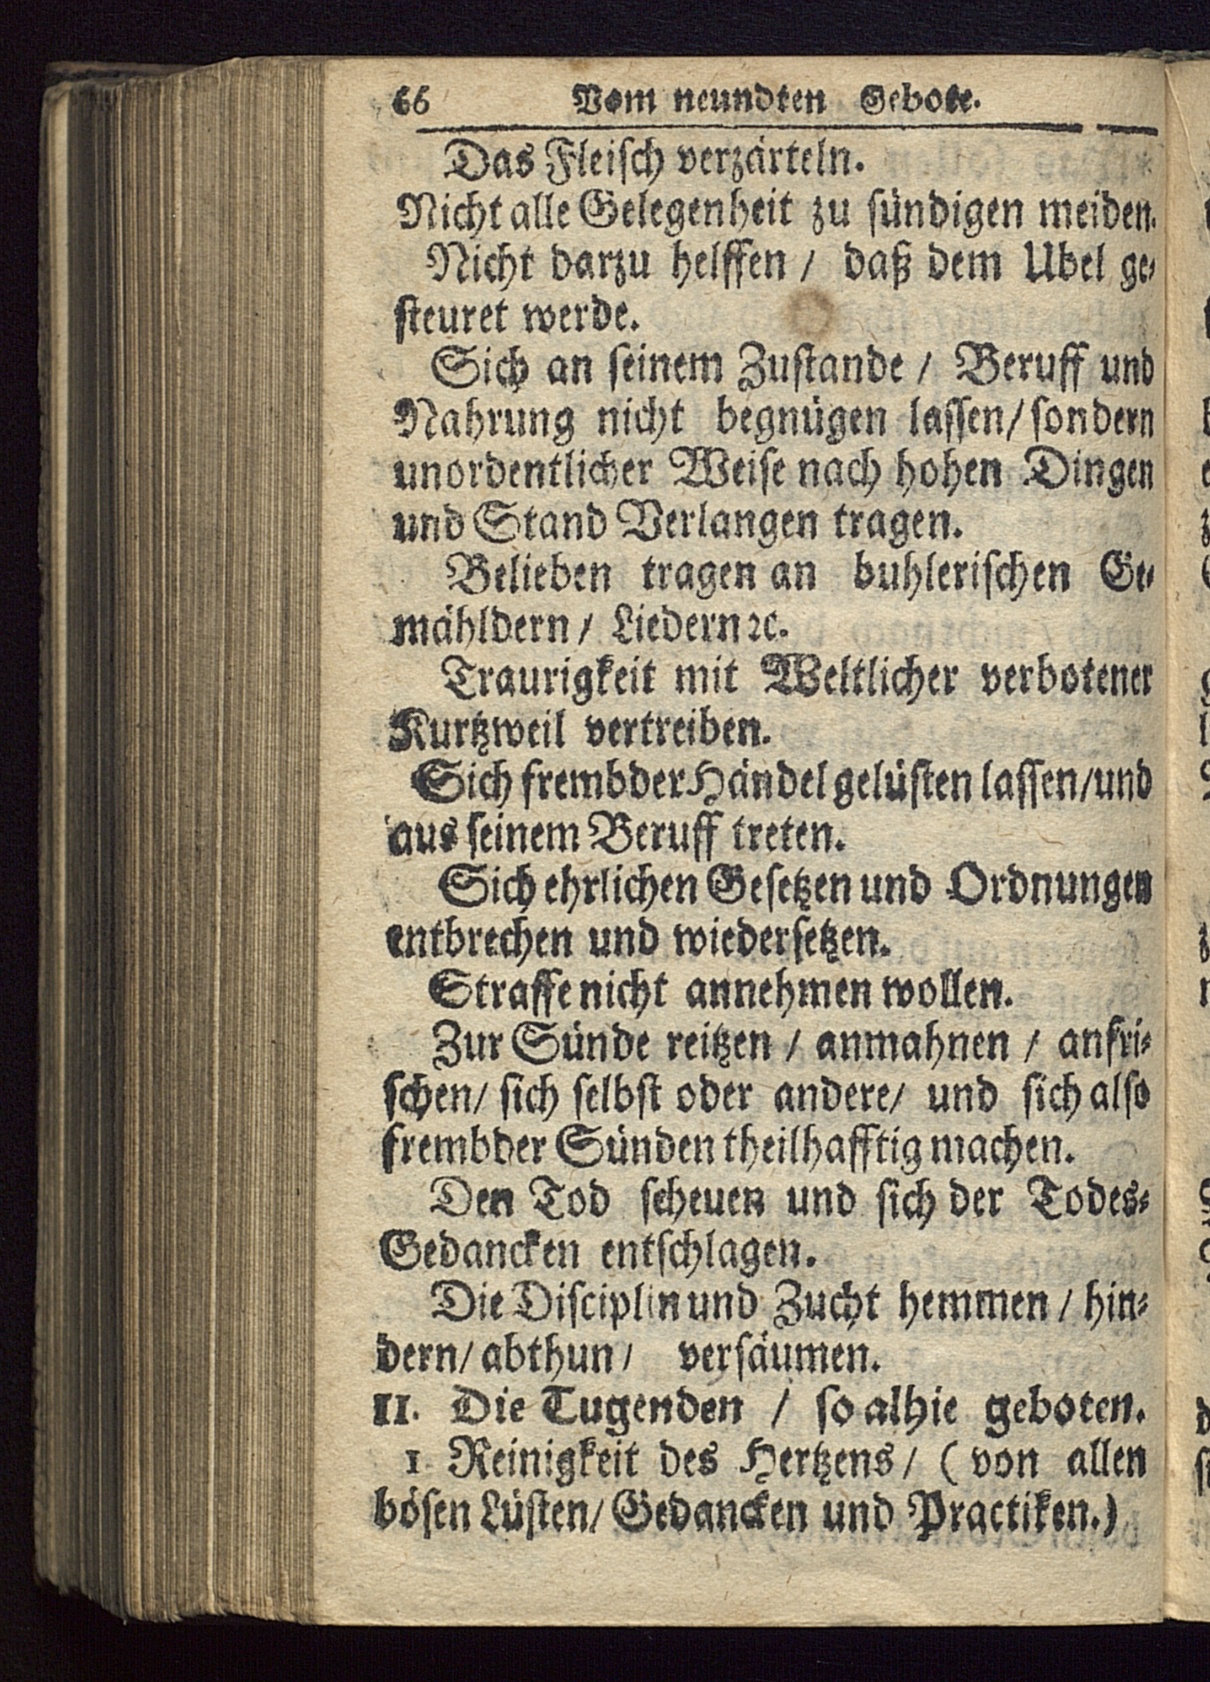 66 Vom neundten Gebote.
Das Fleisch verzärteln.
Nicht alle Gelegenheit zu sündigen meiden.
Nicht darzu helffen / daß dem Ubel ge-
steuret werde.
Sich an seinem Zustande / Beruff und
Nahrung nicht begnügen lassen/ sondern
unordentlicher Weise nach hohen Dingen
und Stand Verlangen tragen.
Belieben tragen an buhlerischen Ge-
mähldern / Liedern ꝛc.
Traurigkeit mit Weltlicher verbotener
Kurtzweil vertreiben.
Sich frembder Händel gelüsten lassen/und
aus seinem Beruff treten.
Sich ehrlichen Gesetzen und Ordnungen
entbrechen und wiedersetzen.
Straffe nicht annehmen wollen.
Zur Sünde reitzen / anmahnen / anfri-
schen/ sich selbst oder andere/ und sich also
frembder Sünden theilhafftig machen.
Den Tod scheuen und sich der Todes-
Gedancken entschlagen.
Die Disciplin und Zucht hemmen / hin-
dern/ abthun / versäumen.
II. Die Tugenden / so alhie geboten.
1 Reinigkeit des Hertzens / ( von allen
bösen Lüsten/ Gedancken und Practiken.)